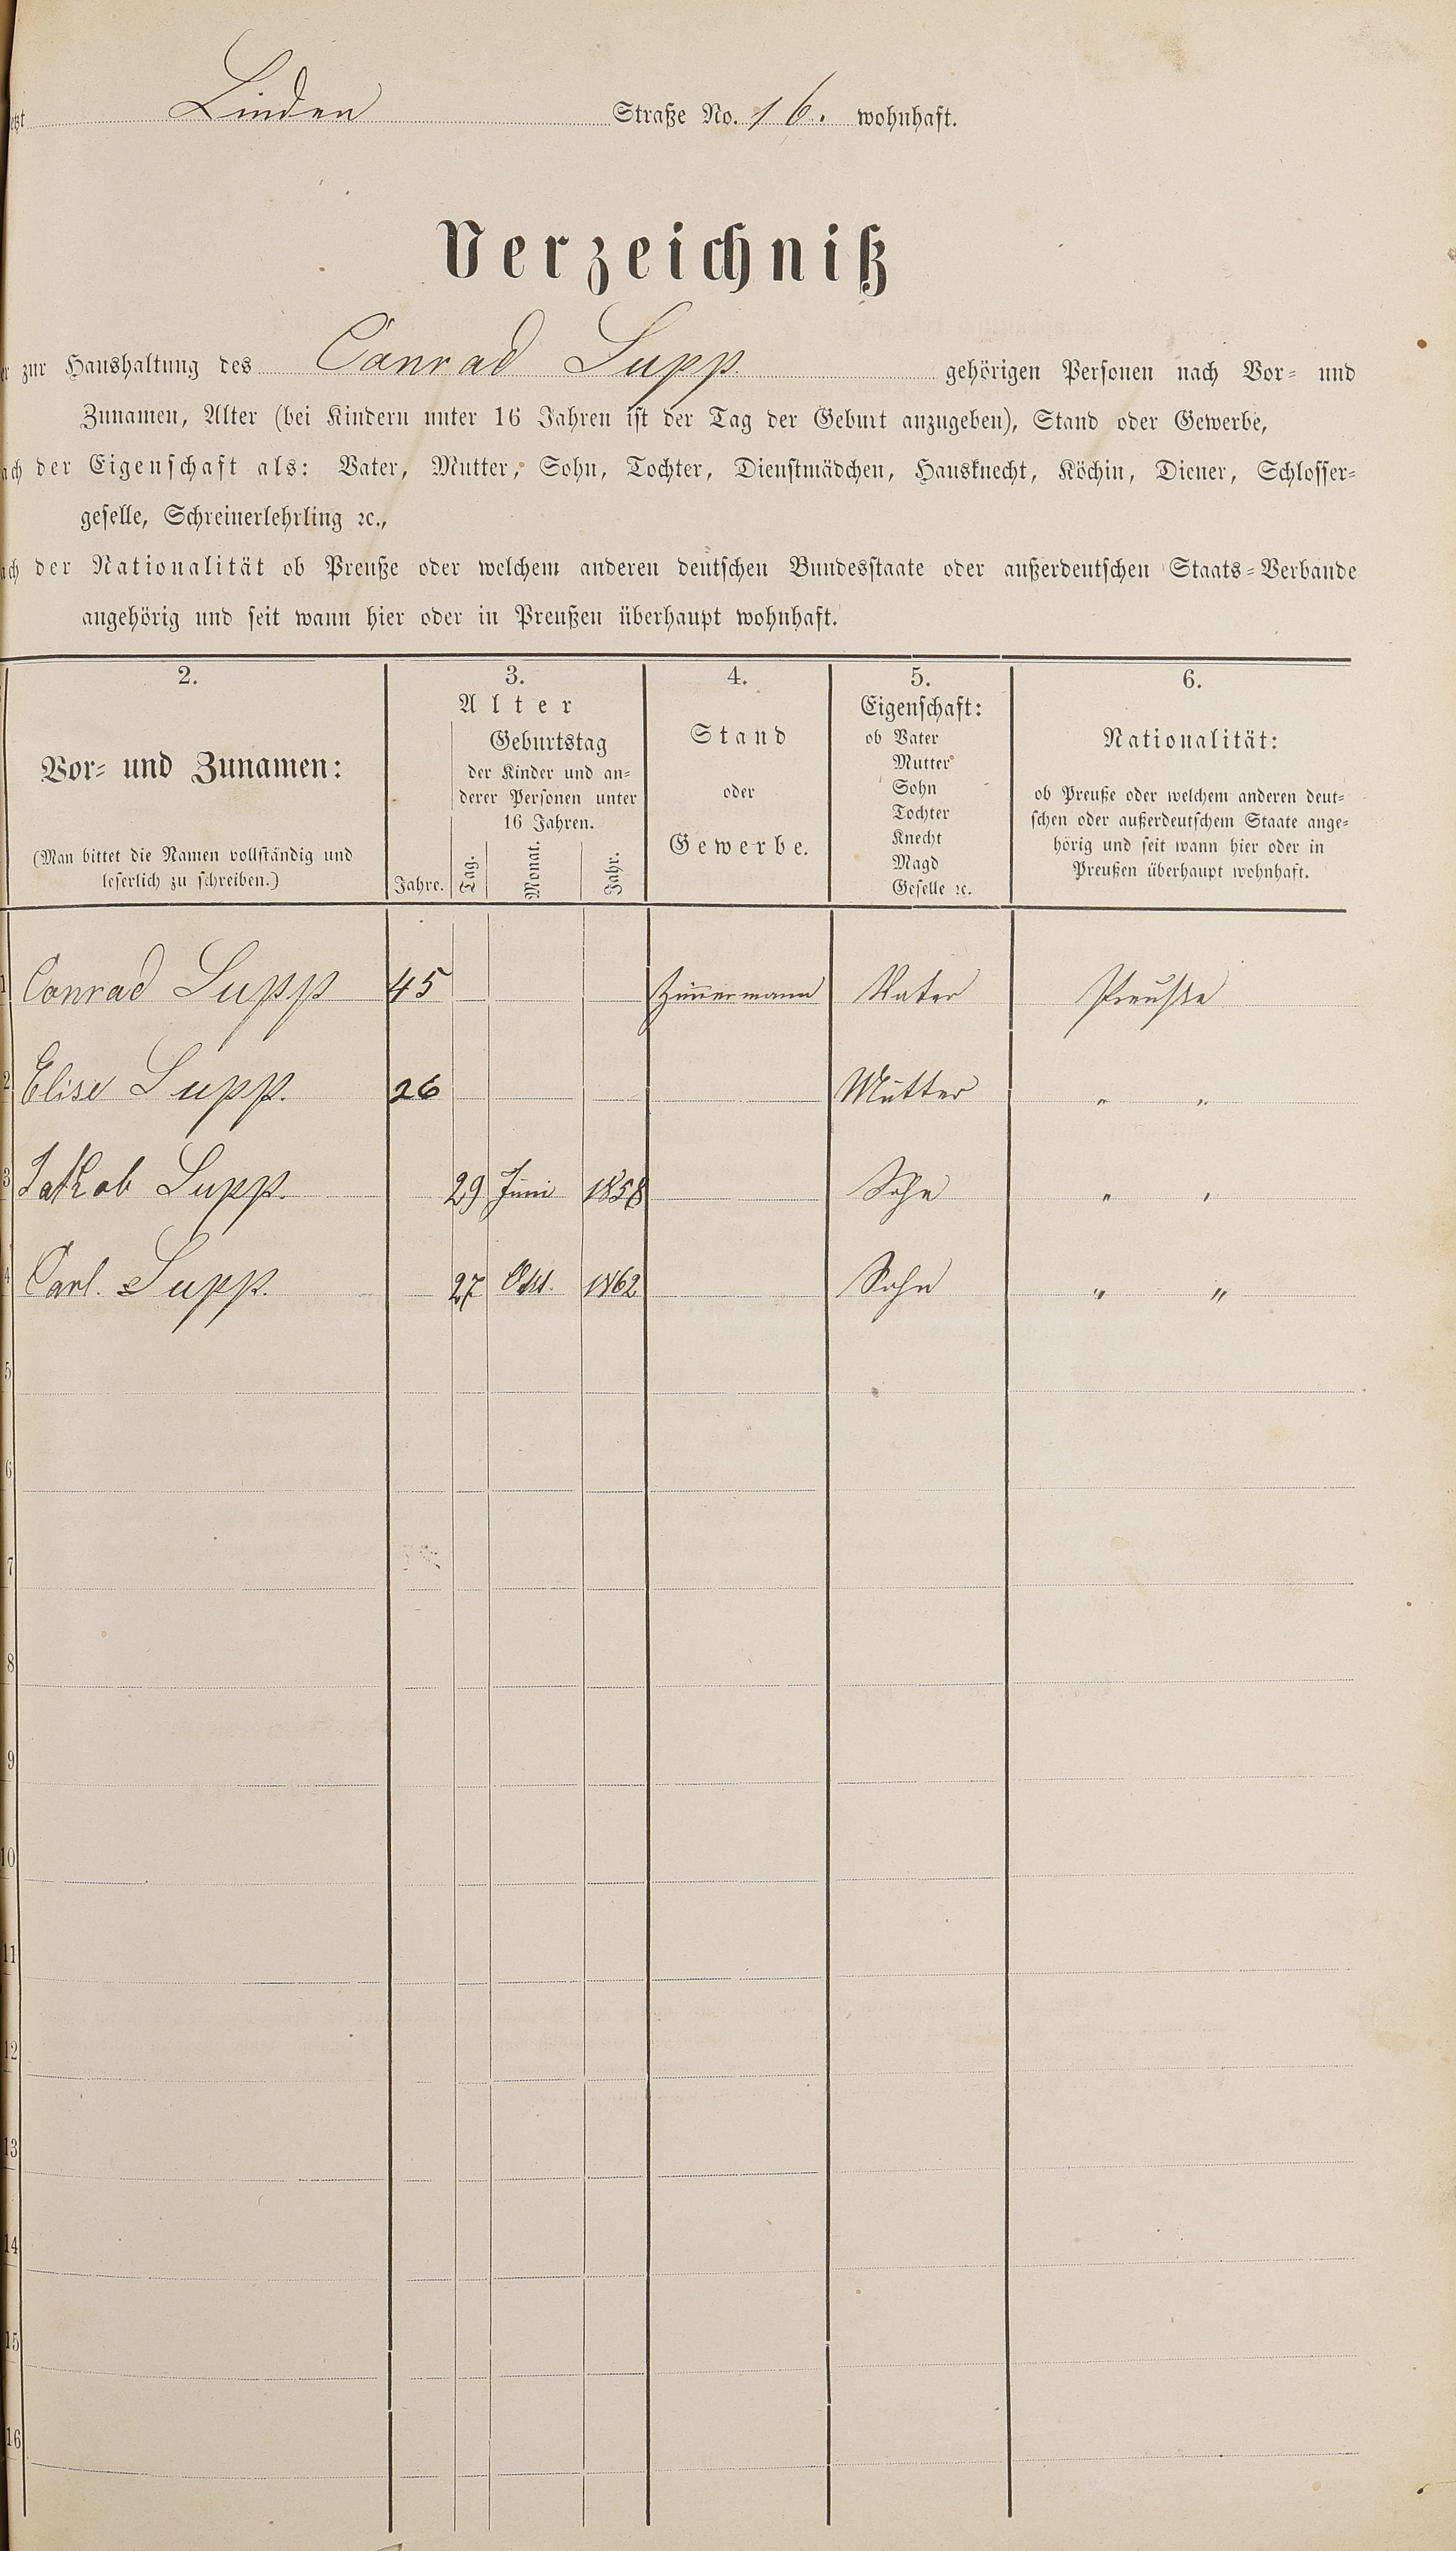 Linden Straße No. 16. wohnhaft.
Verzeichniß
zur Haushaltung des Conrad Supp gehörigen Personen nach Vor- und
Zunamen, Alter (bei Kindern unter 16 Jahren ist der Tag der Geburt anzugeben), Stand oder Gewerbe,
der Eigenschaft als: Vater, Mutter, Sohn, Tochter, Dienstmädchen, Hausknecht, Köchin, Diener, Schlosser-
geselle, Schreinerlehrling ꝛc.,
der Nationalität ob Preuße oder welchem anderen deutschen Bundesstaate oder außerdeutschen Staats-Verbande
angehörig und seit wann hier oder in Preußen überhaupt wohnhaft.
2. 3. 4. 5. 6.
Vor- und Zunamen:
(Man bittet die Namen vollständig und
leserlich zu schreiben.)
Alter
Geburtstag
der Kinder und an-
derer Personen unter
16 Jahren.
Jahre. Tag. Monat. Jahr.
Stand
oder
Gewerbe.
Eigenschaft:
ob Vater
Mutter
Sohn
Tochter
Knecht
Magd
Geselle ꝛc.
Nationalität:
ob Preuße oder welchem anderen deut-
schen oder außerdeutschem Staate ange-
hörig und seit wann hier oder in
Preußen überhaupt wohnhaft.
1 Conrad Supp 45 Zimmermann Vater Preuße
2 Elise Supp. 26 Mutter " "
3 Jakob Supp. 29 Juni 1858 Sohn " "
4 Carl. Supp. 27 Okt. 1862 Sohn " "
5
6
7
8
9
10
11
12
13
14
15
16